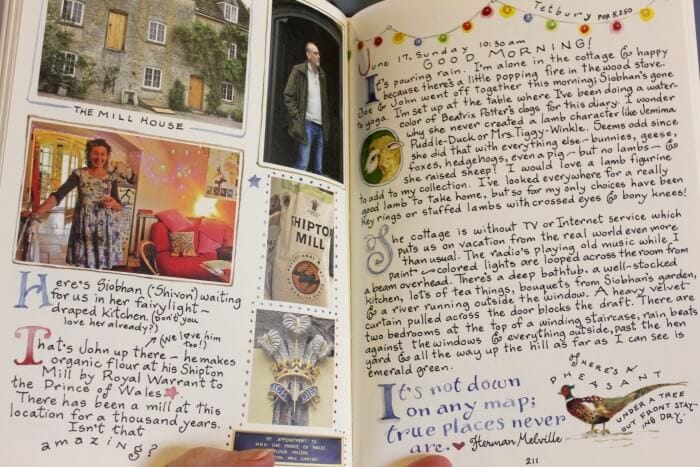 THE MILL HOUSE
SHIPTON
MILL
Here's Siobhan ("Shivon") waiting
for us in her fairy light-
draped kitchen. (Don't you
love her already?)
(We love him
too!)
That's John up there – he makes
organic flour at his Shipton
Mill by Royal Warrant to
the Prince of Wales.
There has been a mill at this
location for a thousand years.
Isn't that
amazing?
BY APPOINTMENT TO
H.R.H. THE PRINCE OF WALES
Tetbury POP. 5,250
June 17, Sunday 10:30 am
GOOD MORNING!
It's pouring rain. I'm alone in the cottage & happy
because there's a little popping fire in the wood stove.
Joe & John went off together this morning; Siobhan's gone
to yoga. I'm set up at the table where I've been doing a water-
color of Beatrix Potter's clogs for this diary. I wonder
why she never created a lamb character like Jemima
Puddle-Duck or Mrs. Tiggy-Winkle. Seems odd since
she did that with everything else – bunnies, geese,
foxes, hedgehogs, even a pig – but no lambs – &
she raised sheep? I would love a lamb figurine
to add to my collection. I've looked everywhere for a really
good lamb to take home, but so far my only choices have been
key rings or stuffed lambs with crossed eyes & bony knees!
The cottage is without TV or Internet service which
puts us on vacation from the real world even more
than usual. The radio's playing old music while I
paint – colored lights are looped across the room from
a beam overhead. There's a deep bathtub, a well-stocked
kitchen, lots of tea things, bouquets from Siobhan's garden
& a river running outside the window. A heavy velvet
curtain pulled across the door blocks the draft. There are
two bedrooms at the top of a winding staircase, rain beats
against the windows & everything outside, past the hen
yard & all the way up the hill as far as I can see is
emerald green.
It's not down
on any map;
true places never
are. Herman Melville
HERE'S
A
PHEASANT
UNDER A TREE
OUT FRONT STAY-
ING DRY.
211